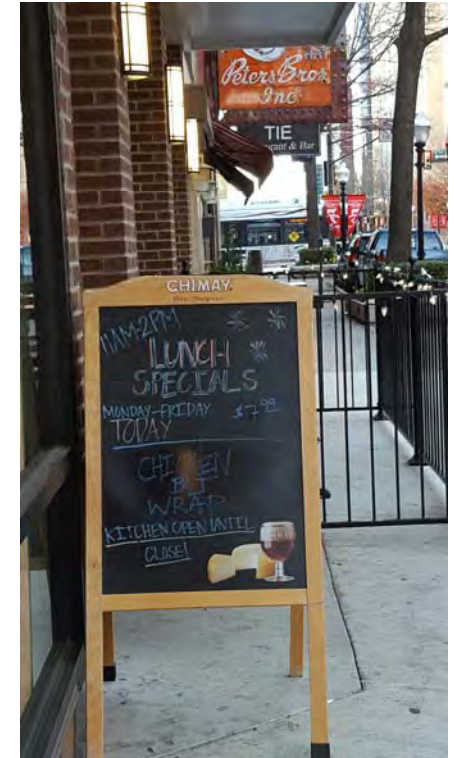 HAT
Peters Bros.
Inc
TIE
rant & Bar
CHIMAY
11AM-2PM
LUNCH
SPECIALS
MONDAY-FRIDAY $7.99
TODAY
CHICKEN
BLT
WRAP
KITCHEN OPEN UNTIL
CLOSE!